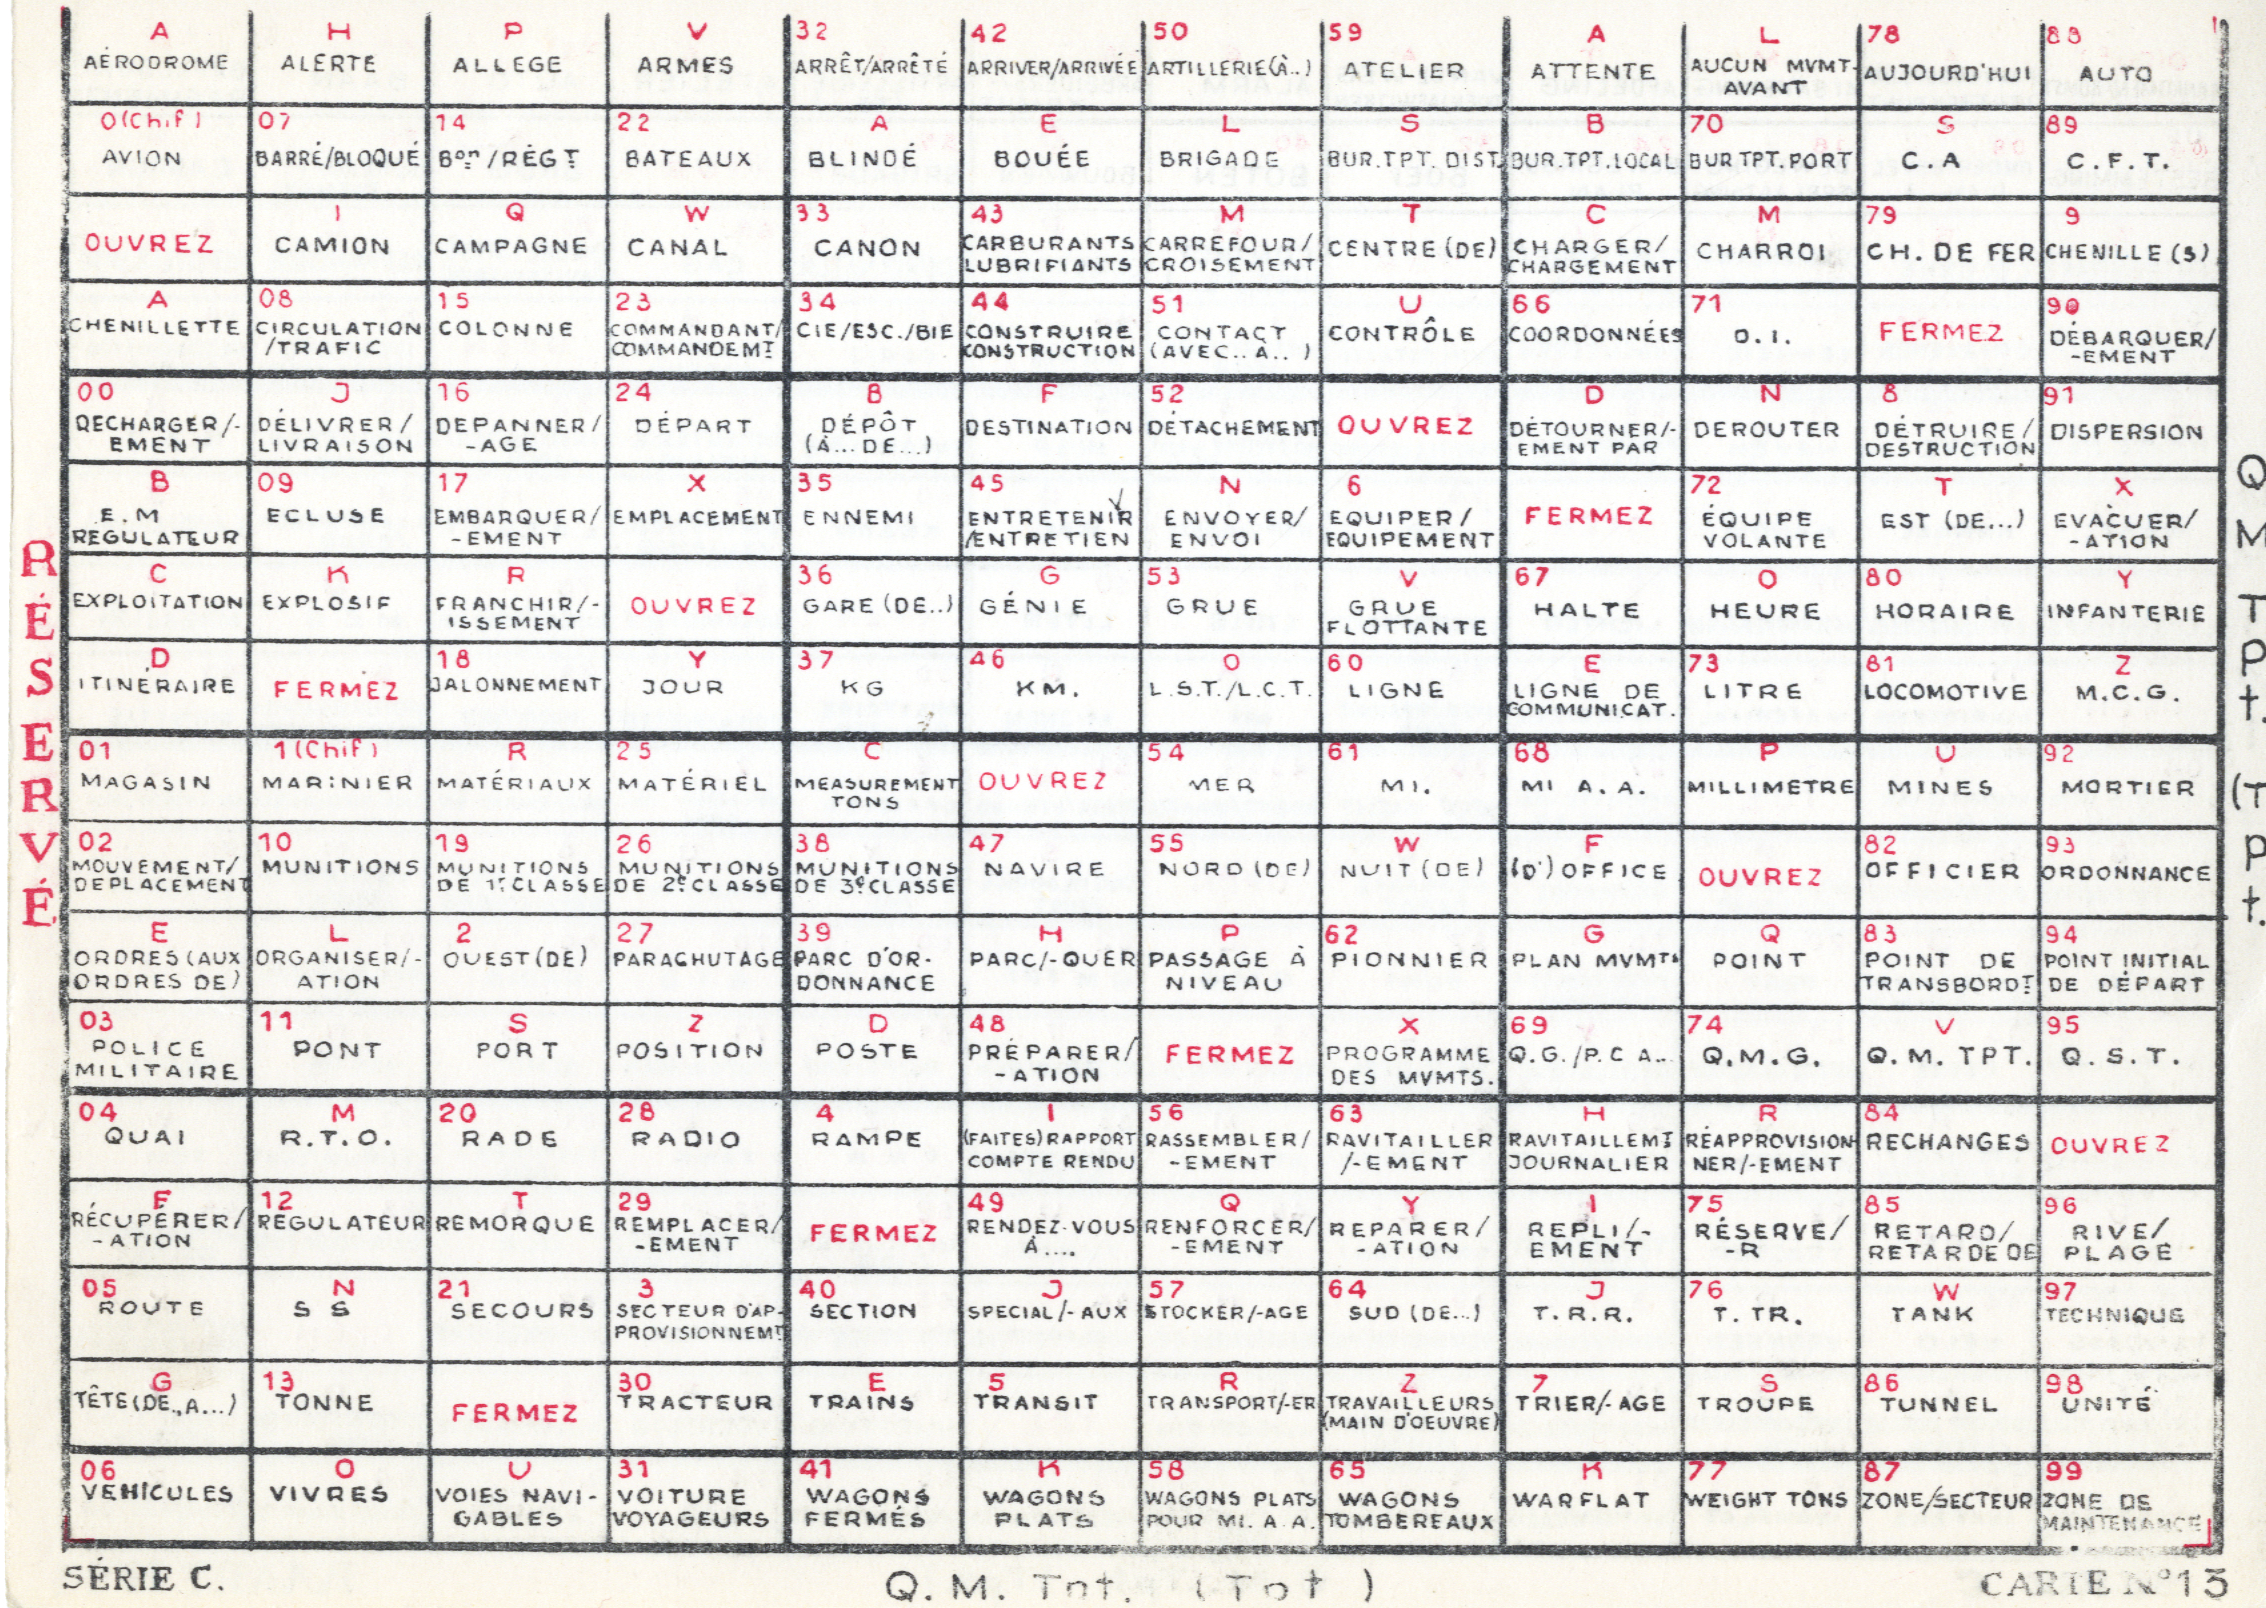 A H P V 32 42 50 59 A L 78 88
AÉRODROME ALERTE ALLEGE ARMES ARRÊT/ARRÊTÉ ARRIVER/ARRIVÉE ARTILLERIE(À..) ATELIER ATTENTE AUCUN MVMT- AUJOURD'HUI AUTO
AVANT
0(Chif) 07 14 22 A E L S B 70 S 89
AVION BARRÉ/BLOQUÉ Bon/RÉGT BATEAUX BLINDÉ BOUÉE BRIGADE BUR.TPT.DIST. BUR.TPT.LOCAL BUR TPT.PORT C.A C.F.T.
I Q W 33 43 M T C M 79 9
OUVREZ CAMION CAMPAGNE CANAL CANON CARBURANTS CARREFOUR/ CENTRE (DE) CHARGER/ CHARROI CH. DE FER CHENILLE (S)
LUBRIFIANTS CROISEMENT CHARGEMENT
A 08 15 23 34 44 51 U 66 71 90
CHENILLETTE CIRCULATION COLONNE COMMANDANT/ CIE/ESC./BIE CONSTRUIRE CONTACT CONTRÔLE COORDONNÉES D.I. FERMEZ DÉBARQUER/
/TRAFIC COMMANDEMT CONSTRUCTION (AVEC.. A.. ) -EMENT
00 J 16 24 B F 52 D N 8 91
DECHARGER/- DÉLIVRER/ DEPANNER/ DÉPART DÉPÔT DESTINATION DÉTACHEMENT OUVREZ DÉTOURNER/- DEROUTER DÉTRUIRE/ DISPERSION
EMENT LIVRAISON -AGE (À... DE...) EMENT PAR DESTRUCTION
B 09 17 X 35 45 N 6 72 T X
E.M ECLUSE EMBARQUER/ EMPLACEMENT ENNEMI ENTRETENIR ENVOYER/ EQUIPER/ FERMEZ ÉQUIPE EST (DE...) EVACUER/
REGULATEUR -EMENT /ENTRETIEN ENVOI EQUIPEMENT VOLANTE -ATION
C K R 36 G 53 V 67 O 80 Y
EXPLOITATION EXPLOSIF FRANCHIR/- OUVREZ GARE (DE..) GÉNIE GRUE GRUE HALTE HEURE HORAIRE INFANTERIE
ISSEMENT FLOTTANTE
D 18 Y 37 46 O 60 E 73 81 Z
ITINÉRAIRE FERMEZ JALONNEMENT JOUR KG KM. L.S.T./L.C.T. LIGNE LIGNE DE LITRE LOCOMOTIVE M.C.G.
COMMUNICAT.
01 1(Chif) R 25 C 54 61 68 P U 92
MAGASIN MARINIER MATÉRIAUX MATÉRIEL MEASUREMENT OUVREZ MER MI. MI A.A. MILLIMETRE MINES MORTIER
TONS
02 10 19 26 38 47 55 W F 82 93
MOUVEMENT/ MUNITIONS MUNITIONS MUNITIONS MUNITIONS NAVIRE NORD (DE) NUIT (DE) (D') OFFICE OUVREZ OFFICIER ORDONNANCE
DEPLACEMENT DE 1re CLASSE DE 2e CLASSE DE 3e CLASSE
E L 2 27 39 H P 62 G Q 83 94
ORDRES (AUX ORGANISER/- OUEST (DE) PARACHUTAGE PARC D'OR- PARC/-QUER PASSAGE À PIONNIER PLAN MVMTs POINT POINT DE POINT INITIAL
ORDRES DE) ATION DONNANCE NIVEAU TRANSBORDT DE DÉPART
03 11 S Z D 48 X 69 74 V 95
POLICE PONT PORT POSITION POSTE PRÉPARER/ FERMEZ PROGRAMME Q.G./P.C A.. Q.M.G. Q.M. TPT. Q.S.T.
MILITAIRE -ATION DES MVMTS.
04 M 20 28 4 I 56 63 H R 84
QUAI R.T.O. RADE RADIO RAMPE (FAITES) RAPPORT RASSEMBLER/ RAVITAILLER RAVITAILLEMT RÉAPPROVISION RECHANGES OUVREZ
COMPTE RENDU -EMENT /-EMENT JOURNALIER NER/-EMENT
F 12 T 29 49 Q Y I 75 85 96
RÉCUPÉRER/ RÉGULATEUR REMORQUE REMPLACER/ FERMEZ RENDEZ-VOUS RENFORCER/ REPARER/ REPLI/- RÉSERVE/ RETARD/ RIVE/
-ATION -EMENT À.... -EMENT -ATION EMENT -R RETARDE DE PLAGE
05 N 21 3 40 J 57 64 J 76 W 97
ROUTE S S SECOURS SECTEUR D'AP- SECTION SPECIAL/-AUX STOCKER/-AGE SUD (DE...) T.R.R. T. TR. TANK TECHNIQUE
PROVISIONNEMT
G 13 30 E 5 R Z 7 S 86 98
TÊTE (DE., A...) TONNE FERMEZ TRACTEUR TRAINS TRANSIT TRANSPORT/-ER TRAVAILLEURS TRIER/-AGE TROUPE TUNNEL UNITÉ
(MAIN D'OEUVRE)
06 O U 31 41 K 58 65 K 77 87 99
VEHICULES VIVRES VOIES NAVI- VOITURE WAGONS WAGONS WAGONS PLATS WAGONS WARFLAT WEIGHT TONS ZONE/SECTEUR ZONE DE
GABLES VOYAGEURS FERMÉS PLATS POUR MI. A.A. TOMBEREAUX MAINTENANCE
RÉSERVÉ
Q M TPt. (TPt.
SÉRIE C. Q.M. Tpt. (Tpt ) CARTE N°13